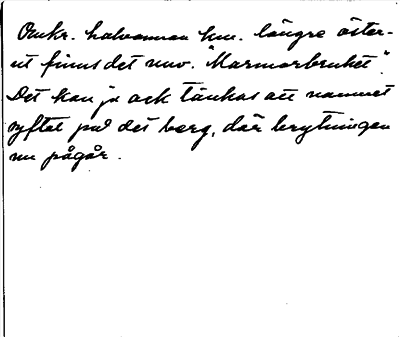 Omkr. halvannan km. längre öster-
ut finns det nuv. "Marmorbruket".
Det kan ju ock tänkas att namnet
syftat på det berg, där brytningen
nu pågår.